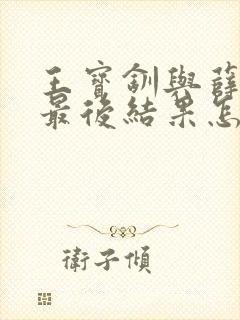 王寶釧與薛
最後結果怎
衛子傾